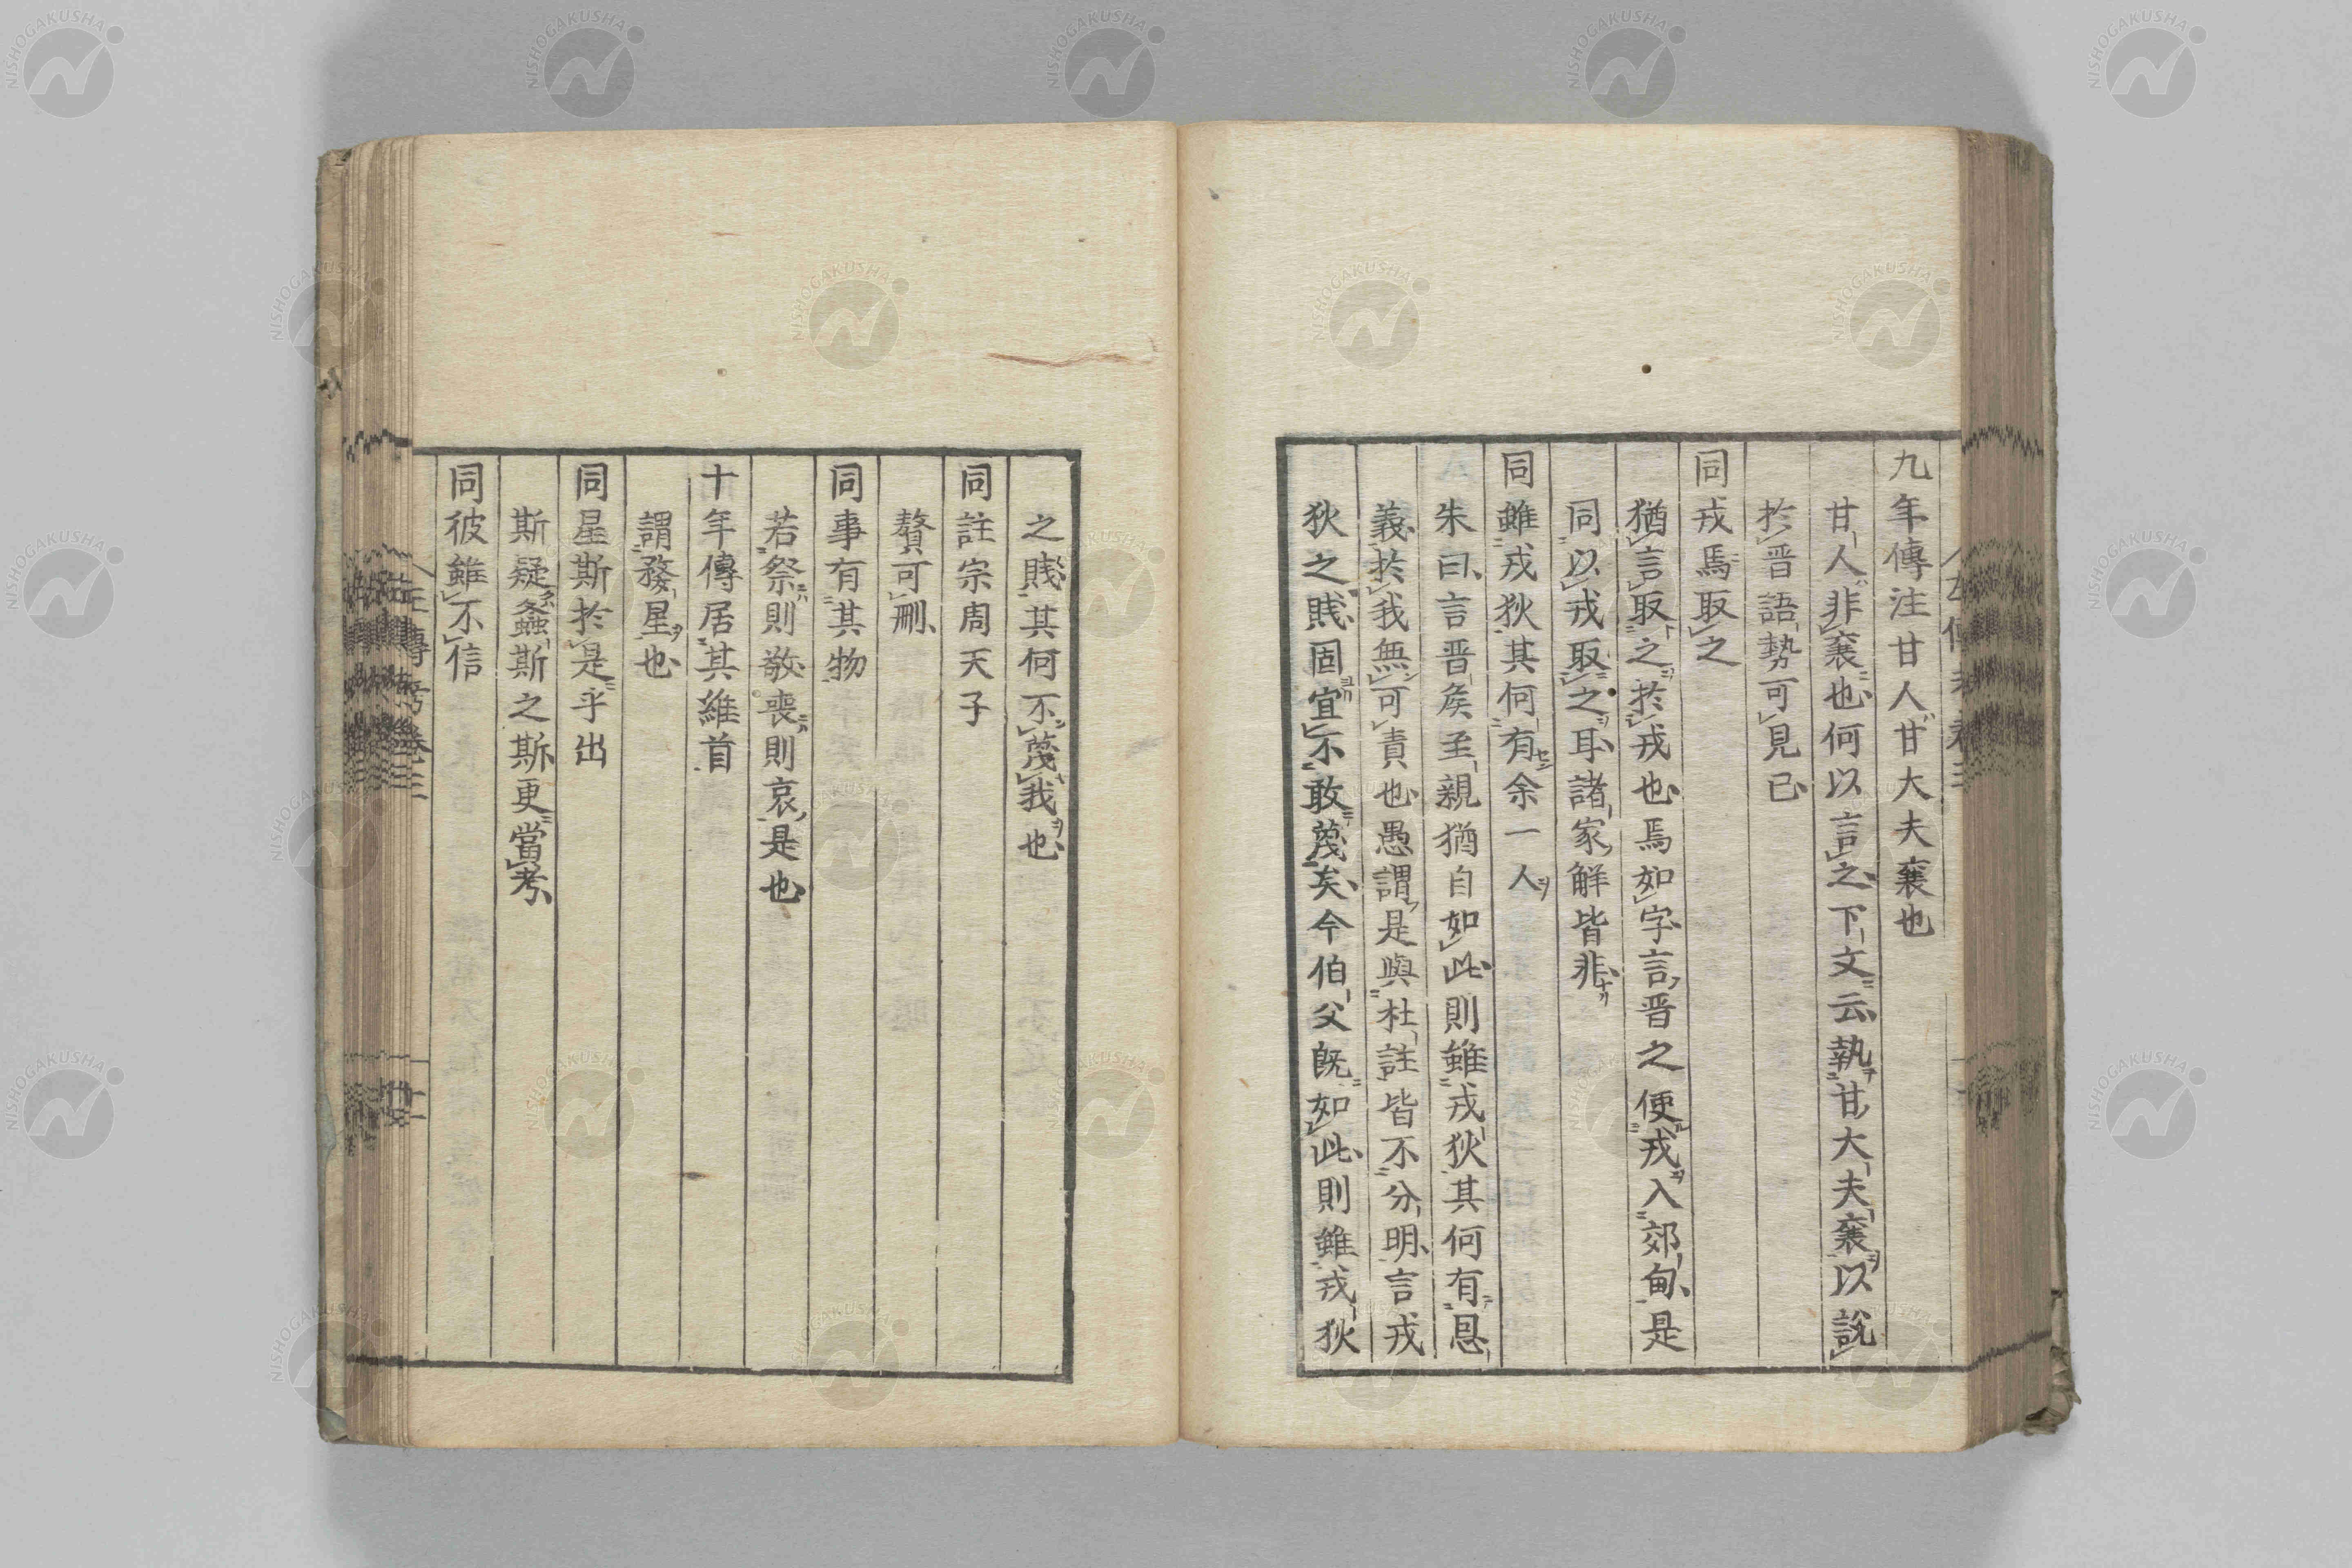 九年傳注甘人甘大夫襄也
甘人非襄也何以言之下文云執甘大夫襄以說
於晋語勢可見已
同戎焉取之
猶言取之於戎也焉如字言晋之使戎入郊甸是
同以戎取之耳諸家解皆非
同雖戎狄其何有余一人
朱曰言晋矦至親猶自如此則雖戎狄其何有恩
義於我無可責也愚謂是與杜註皆不分明言戎
狄之賎固宜不敢蔑矣今伯父既如此則雖戎狄
之賎其何不蔑我也
同註宗周天子
贅可刪
同事有其物
若祭則敬喪則哀是也
十年傳居其維首
謂婺星也
同星斯於是乎出
斯疑螽斯之斯更當考
同彼雖不信
左傳考卷三
NISHOGAKUSHA